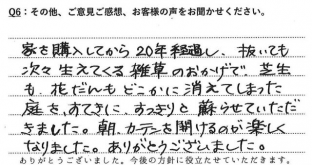 Q6：その他、ご意見ご感想、お客様の声をお聞かせください。
家を購入してから20年経過し、抜いても
次々生えてくる雑草のおかげで、芝生
も、花だんもどこかに消えてしまった
庭を、すてきに、すっきりと蘇らせていただ
きました。朝、カーテンを開けるのが楽しく
なりました。ありがとうございました。
ありがとうございました。今後の方針に役立たせていただきます。